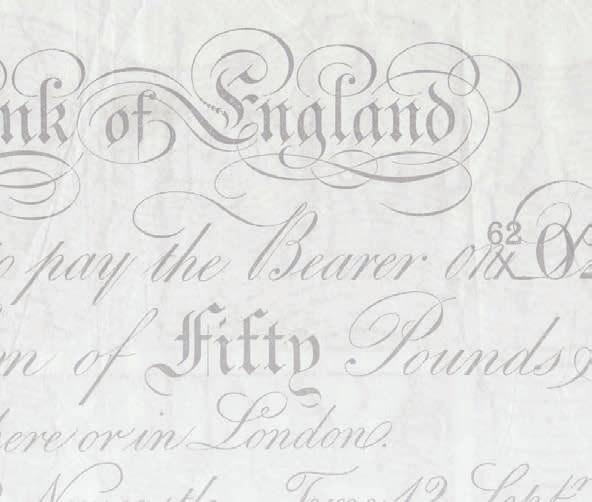 nk of England
62
o pay the Bearer on
m of Fifty Pounds
here or in London.
Newcastle Tyne 12 Sept.r